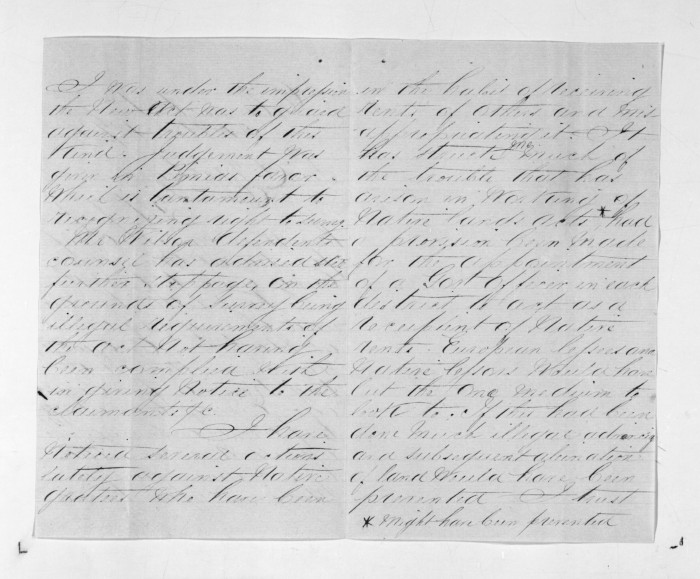 I was under the impression
the New Act was to guard
against troubles of this
kind. Judgement was
given in favor
which is tantamount to
recognizing right to survey
Mr Wilson defendants
counsel has advised the
further stoppage, on the
grounds of survey being
illegal requirements of
the act not having
been complied with
in giving notice to the
claimants &c
I have
noticed several actions
lately against Native
grantees who have been
in the habit of receiving
rents of others and mis
appropriating it. It
has struck me much of
the trouble that has
arisen in working of
Native Lands Acts * had
a provision been made
for the appointment
of a Govt Officer in each
district to act as a
recipient of Native
rents. European lessees and
Native lessors would have
but the one medium to
look to. If this had been
done much illegal
and subsequent alienation
of land would have been
prevented I trust
* might have been prevented